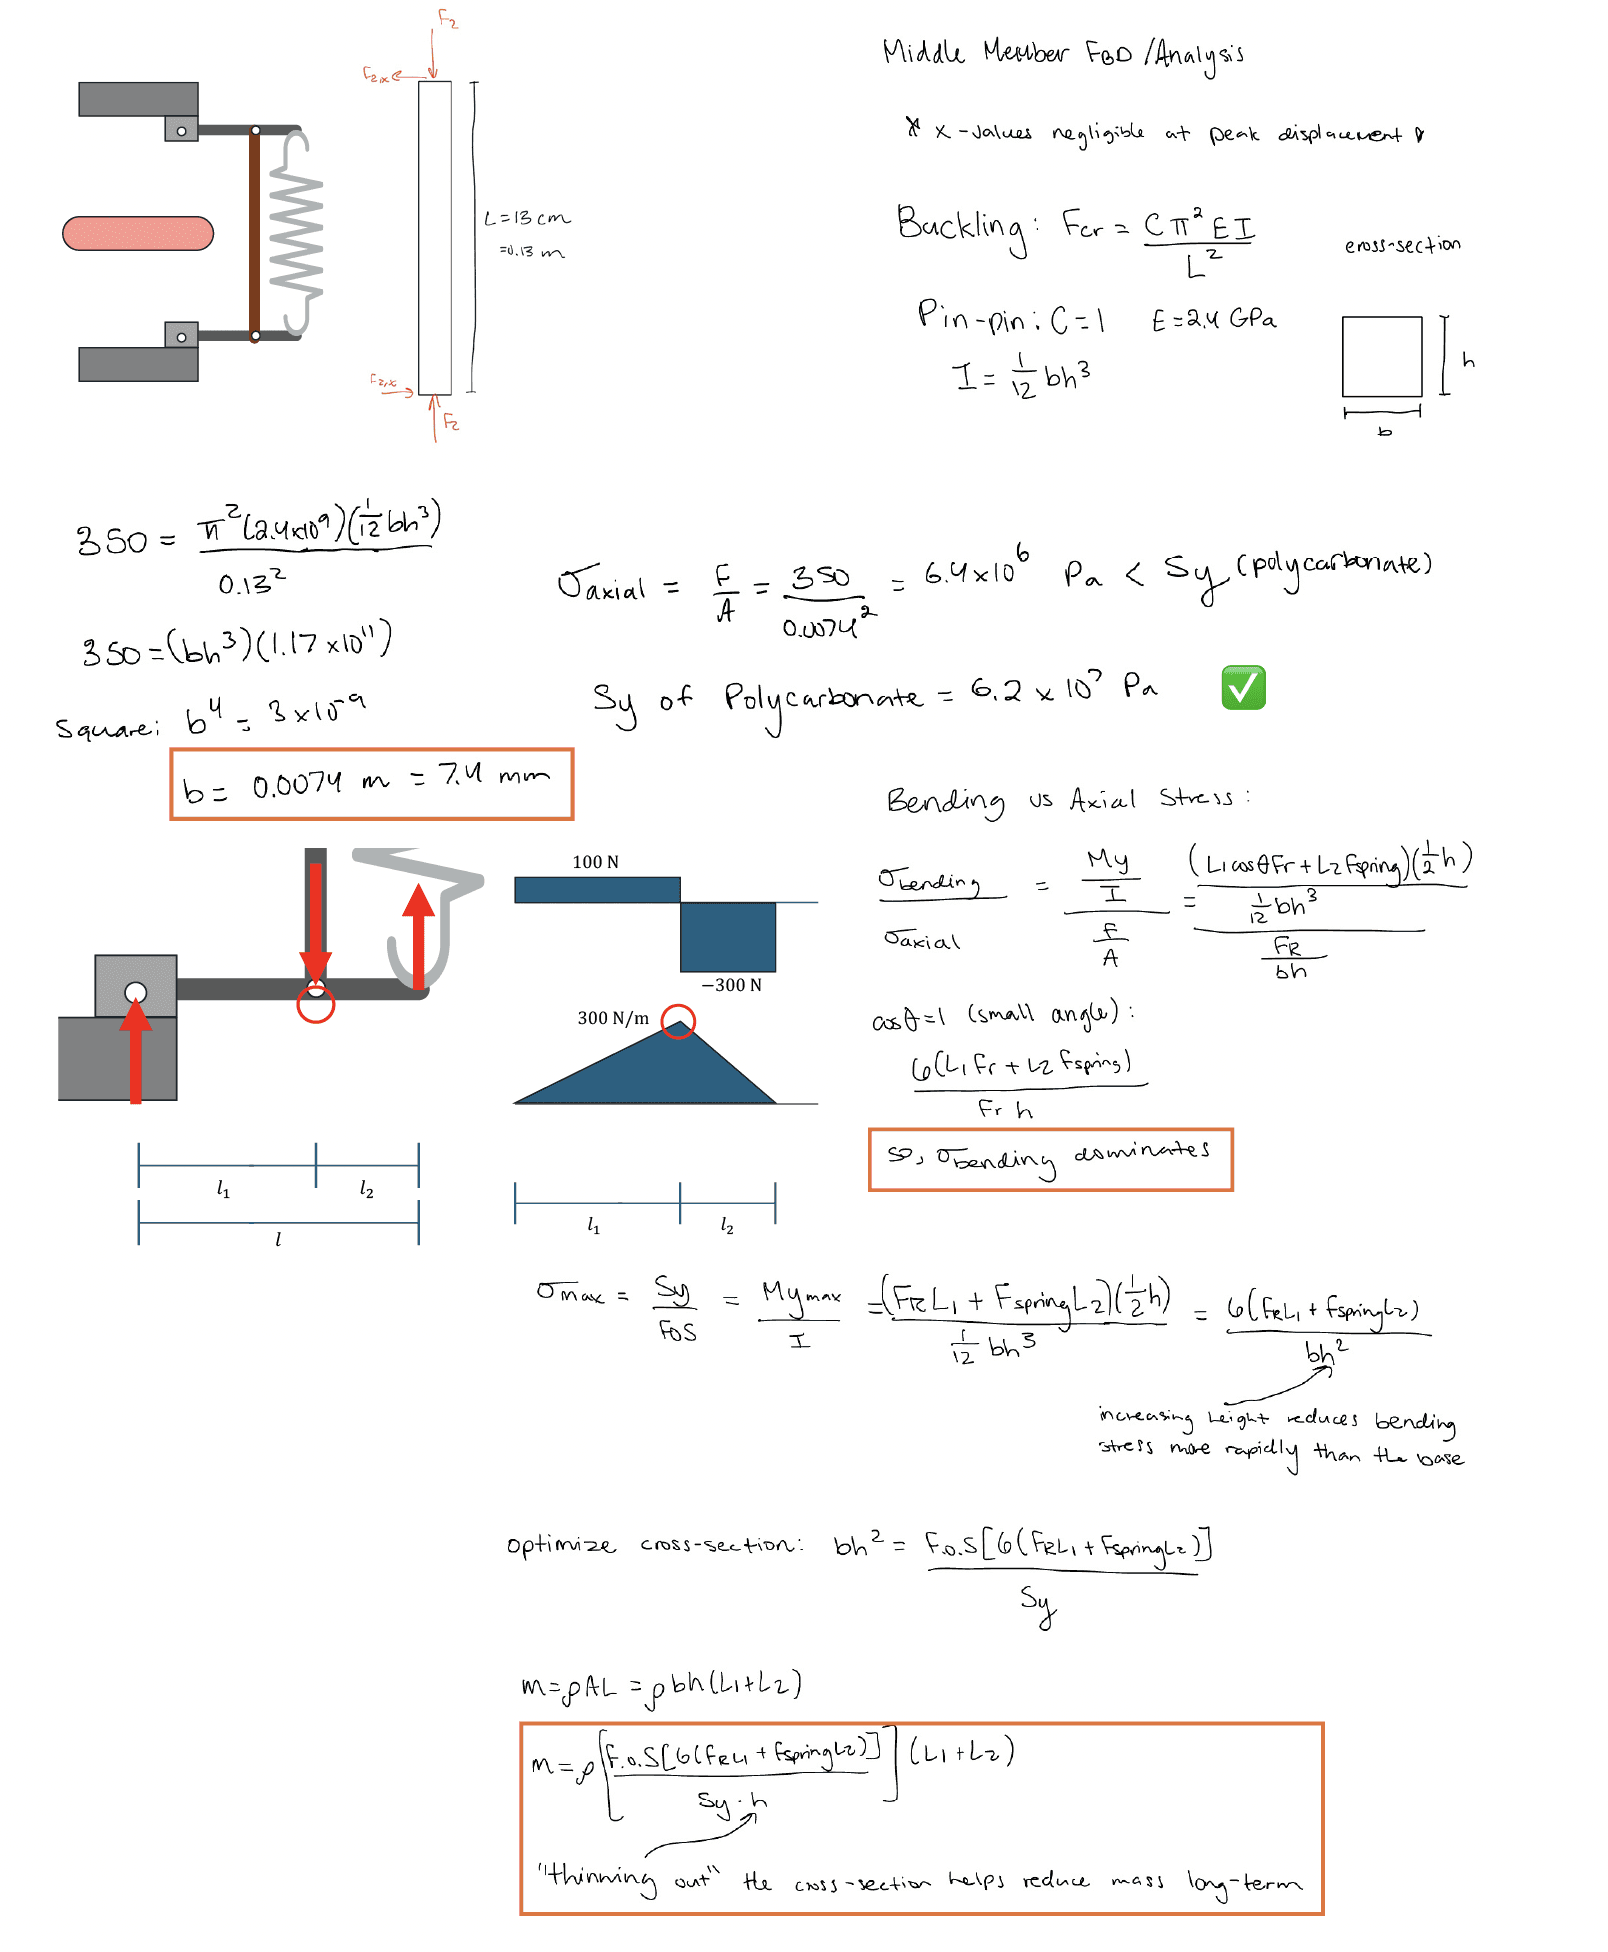 Middle Member FBD/Analysis
* x-values negligible at peak displacement *
F₂
F₂,ₓ
L=13 cm
=0.13 m
F₂,ₓ
F₂
Buckling: Fcr = Cπ²EI / L²
cross-section
Pin-pin: C=1 E=2.4 GPa
I = 1/12 bh³
h
b
350 = π²(2.4x10⁹)(1/12 bh³) / 0.13²
350=(bh³)(1.17x10¹¹)
Square: b⁴ = 3x10⁻⁹
b= 0.0074 m = 7.4 mm
σaxial = F/A = 350 / 0.0074² = 6.4x10⁶ Pa < Sy (polycarbonate)
Sy of Polycarbonate = 6.2 x 10⁷ Pa ✅
Bending vs Axial Stress:
σbending / σaxial = (My/I) / (F/A) = ((L₁cosθFr+L₂Fspring)(1/2 h) / (1/12 bh³)) / (FR/bh)
cosθ=1 (small angle):
6(L₁Fr+L₂Fspring) / Fr h
so, σbending dominates
100 N
−300 N
300 N/m
l₁
l₂
l
l₁
l₂
σmax = Sy/FOS = Mymax/I = (FRL₁ + FspringL₂)(1/2 h) / (1/12 bh³) = 6(FRL₁+FspringL₂) / bh²
increasing height reduces bending
stress more rapidly than the base
optimize cross-section: bh² = F.O.S[6(FRL₁+FspringL₂)] / Sy
m=ρAL = ρbh(L₁+L₂)
m=ρ[F.O.S[6(FRL₁+FspringL₂)] / Sy·h](L₁+L₂)
"thinning out" the cross-section helps reduce mass long-term